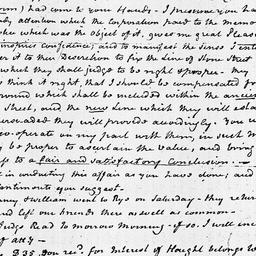 had come to your Hands. I presume you ha
attention which the Corporation paid to the memo
which was the object of it, gives me great Pleas
confidence; and to manifest the sense I ente
to their Discretion to fix the Line of Stone Street
which they shall judge to be right & proper. My
think it right, that I should be compensated fo
ground which shall be included within the
Street, and the new Line which they will esta
persuaded they will provide accordingly. You w
co operate on my part with them, in such
be proper to ascertain the value, and bring
to a fair and satisfactory Conclusion. —
in conducting this affair as you have done; and
you suggest.—
& William went to Rye on Saturday – they retur
left our friends there as well as common—
Read to morrow Morning – if so. I will inc
of att'y —
£35 you rec'd. for Interest of Hought belongs to